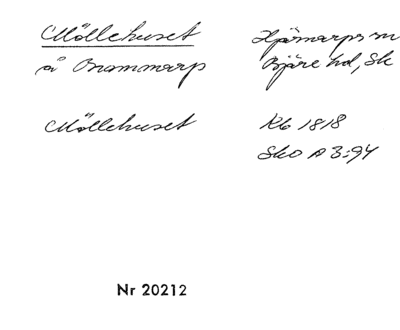 Möllehuset Hjärnarps sn
å Brammarp Bjäre hd, Sk
Möllehuset Kb 1818
Sko A3:94
Nr 20212